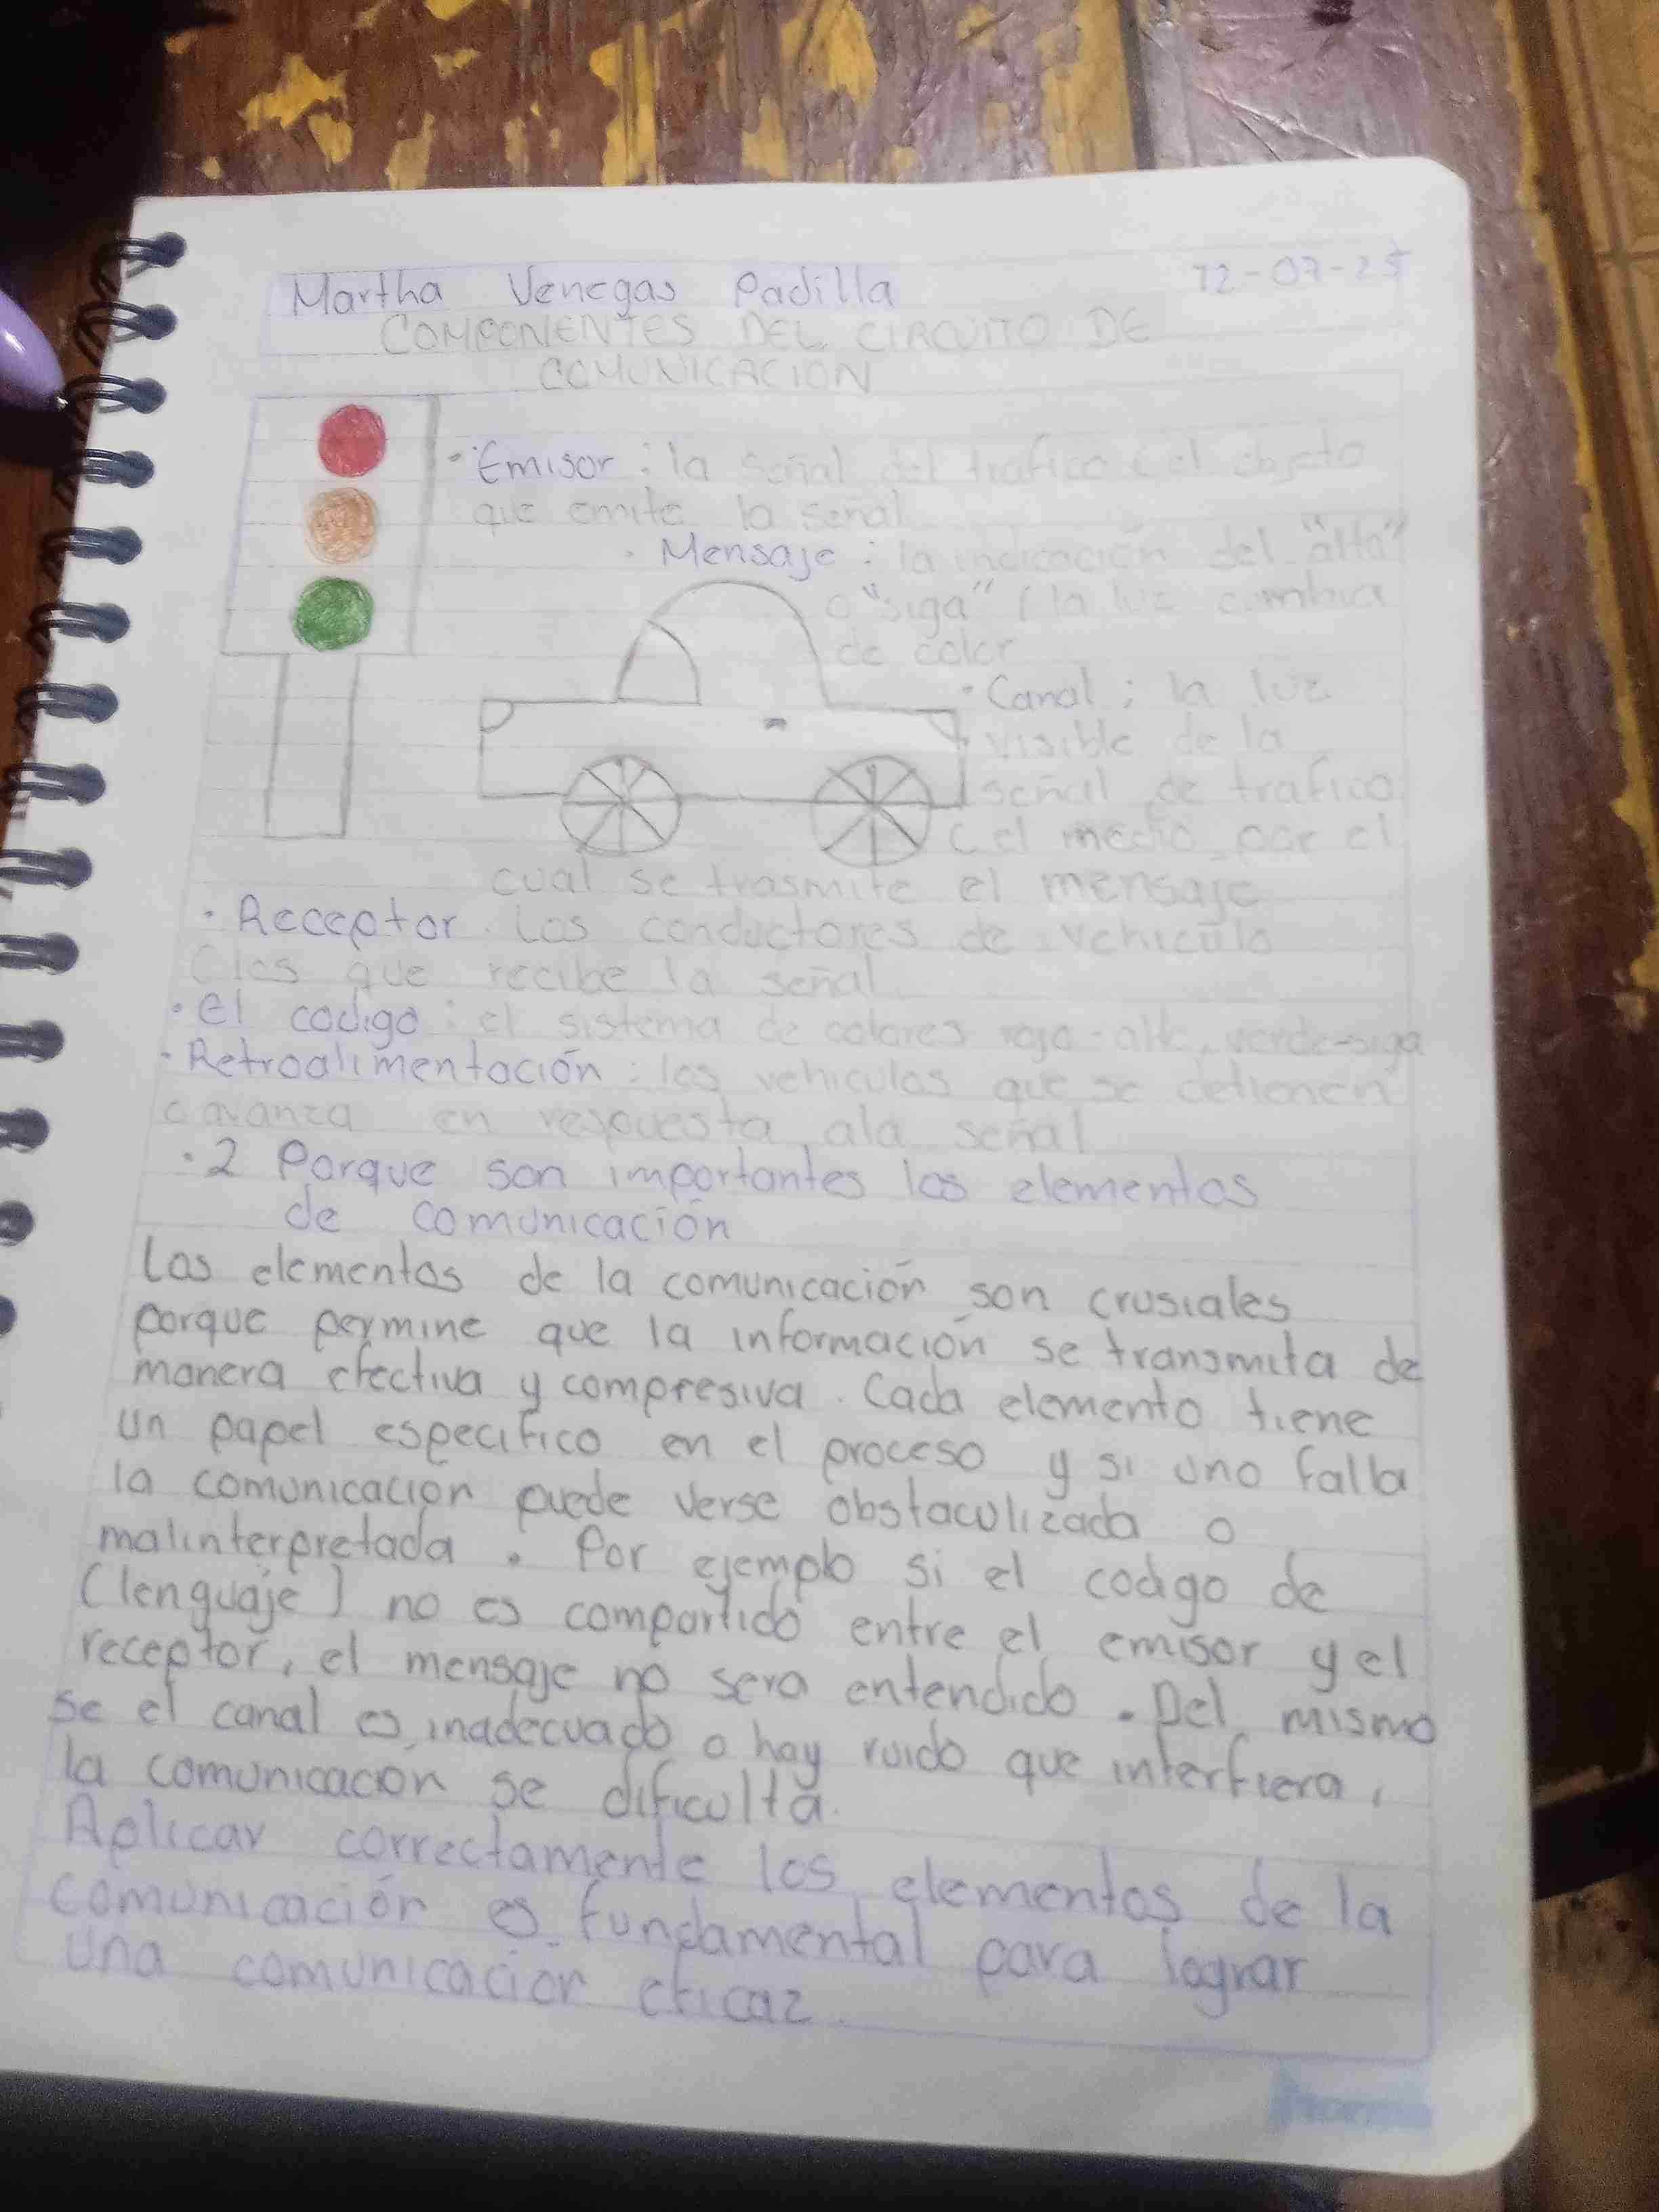 Martha Venegas Padilla 12-07-25
COMPONENTES DEL CIRCUITO DE
COMUNICACION
· Emisor : la señal del trafico ( el objeto
que emite la señal
· Mensaje : la indicación del "alto"
o "siga" ( la luz cambia
de color
· Canal ; la luz
visible de la
señal de trafico
( el medio por el
cual se trasmite el mensaje
· Receptor . Los conductores de vehiculo
( los que recibe la señal
· el codigo : el sistema de colores rojo-alto, verde-siga
· Retroalimentación : los vehiculos que se detienen
o avanza en respuesta ala señal
· 2 Porque son importantes los elementos
de comunicación
Los elementos de la comunicación son crusiales
porque permine que la información se transmita de
manera efectiva y compresiva . Cada elemento tiene
un papel especifico en el proceso y si uno falla
la comunicación puede verse obstaculizada o
malinterpretada . Por ejemplo si el codigo de
(lenguaje) no es compartido entre el emisor y el
receptor, el mensaje no sera entendido . Del mismo
se el canal es inadecuado o hay ruido que interfiera,
la comunicación se dificulta.
Aplicar correctamente los elementos de la
comunicación es fundamental para lograr
una comunicación eficaz.
Norma